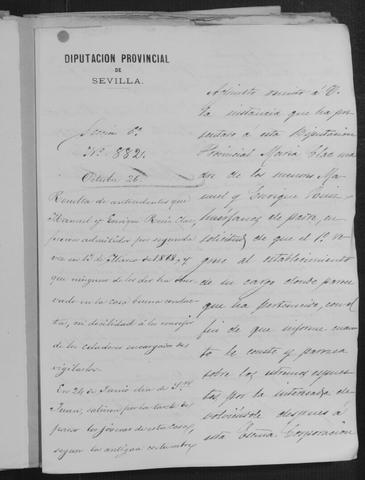 DIPUTACION PROVINCIAL
DE
SEVILLA.
Sección 6ª
Nº 8821.
Octubre 26.
Resulta de antecedentes que
Manuel y Enrique Ruiz Clac,
fueron admitidos por segunda
vez en 1º de Marzo de 1868, y
que ninguno de los dos han obser
vado en la casa buena conduc
ta, ni docilidad á los consejos
de los celadores encargados de
vigilarlos.
En 24 de Junio dia de Sn
Juan, salieron por la tarde de
paseo los jóvenes de esta Casa,
segun la antigua costumbre,
Adjunto remito á V.
la instancia que ha pre
sentado a esta Diputacion
Provincial Maria Clac ma
dre de los menores Ma
nuel y Enrique Ruiz
huerfanos de padre, en
solicitud de que el 1º in
grese al establecimiento
de su cargo donde parece
que ha pertenecido, con el
fin de que informe cuan
to le conste y parezca
sobre los estremos espues
tos por la interesada de
volviendola despues á
esta Corporacion